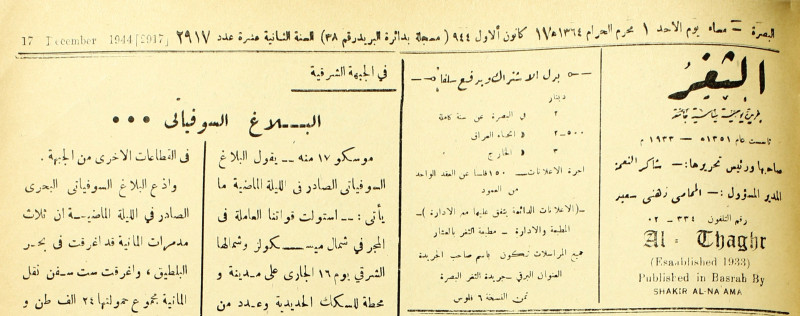 البصرة — مساء يوم الاحد ١ محرم الحرام ١٣٦٤ ﻫ ١٧ كانون الاول ٩٤٤ ( مسجلة بدائرة البريد رقم ٣٨ ) السنة الثانية عشرة عدد ٢٩١٧
17 December 1944 [2917]
الثغر
جريدة يومية سياسية
تأسست عام ١٣٥١ ﻫ — ١٩٣٣ م
صاحبها ورئيس تحريرها :— شاكر النعمة
المدير المسؤول :— المحامي زهني سعيد
رقم التلفون ٣٣٤ — ٠٢
Al - Thaghr
(Esaablished 1933)
Published in Basrah By
SHAKIR AL-NA AMA
بدل الاشتراك ويدفع سلفاً
دينار
٢ في البصرة عن سنة كاملة
٥٠٠—٢ » انحاء العراق
٣ » الخارج
اجرة الاعلانات — ١٥٠ فلسا عن العقد الواحد
من العمود
—( الاعلانات الدائمة يتفق عليها مع الادارة )—
المطبعة والادارة — مطبعة الثغر بالعشار
جميع المراسلات تكون باسم صاحب الجريدة
العنوان البرقي — جريدة الثغر البصرة
ثمن النسخة ٦ فلوس
في الجبهة الشرقية
البـــلاغ السوفياتي •••
موسكو ١٧ منه — يقول البلاغ
السوفياتي الصادر في الليلة الماضية ما
يأتي : — استولت قواتنا العاملة في
المجر في شمال ميسكولز وشمالها
الشرقي يوم ١٦ الجاري على مدينة و
محطة للسكك الحديدية وعدد من
في القطاعات الاخرى من الجبهة .
واذع البلاغ السوفياتي البحري
الصادر في الليلة الماضية ان ثلاث
مدمرات المانية قد اغرقت في بحر
البلطيق ، واغرقت ست سفن نقل
المانية مجموع حمولتها ٢٤ الف طن و